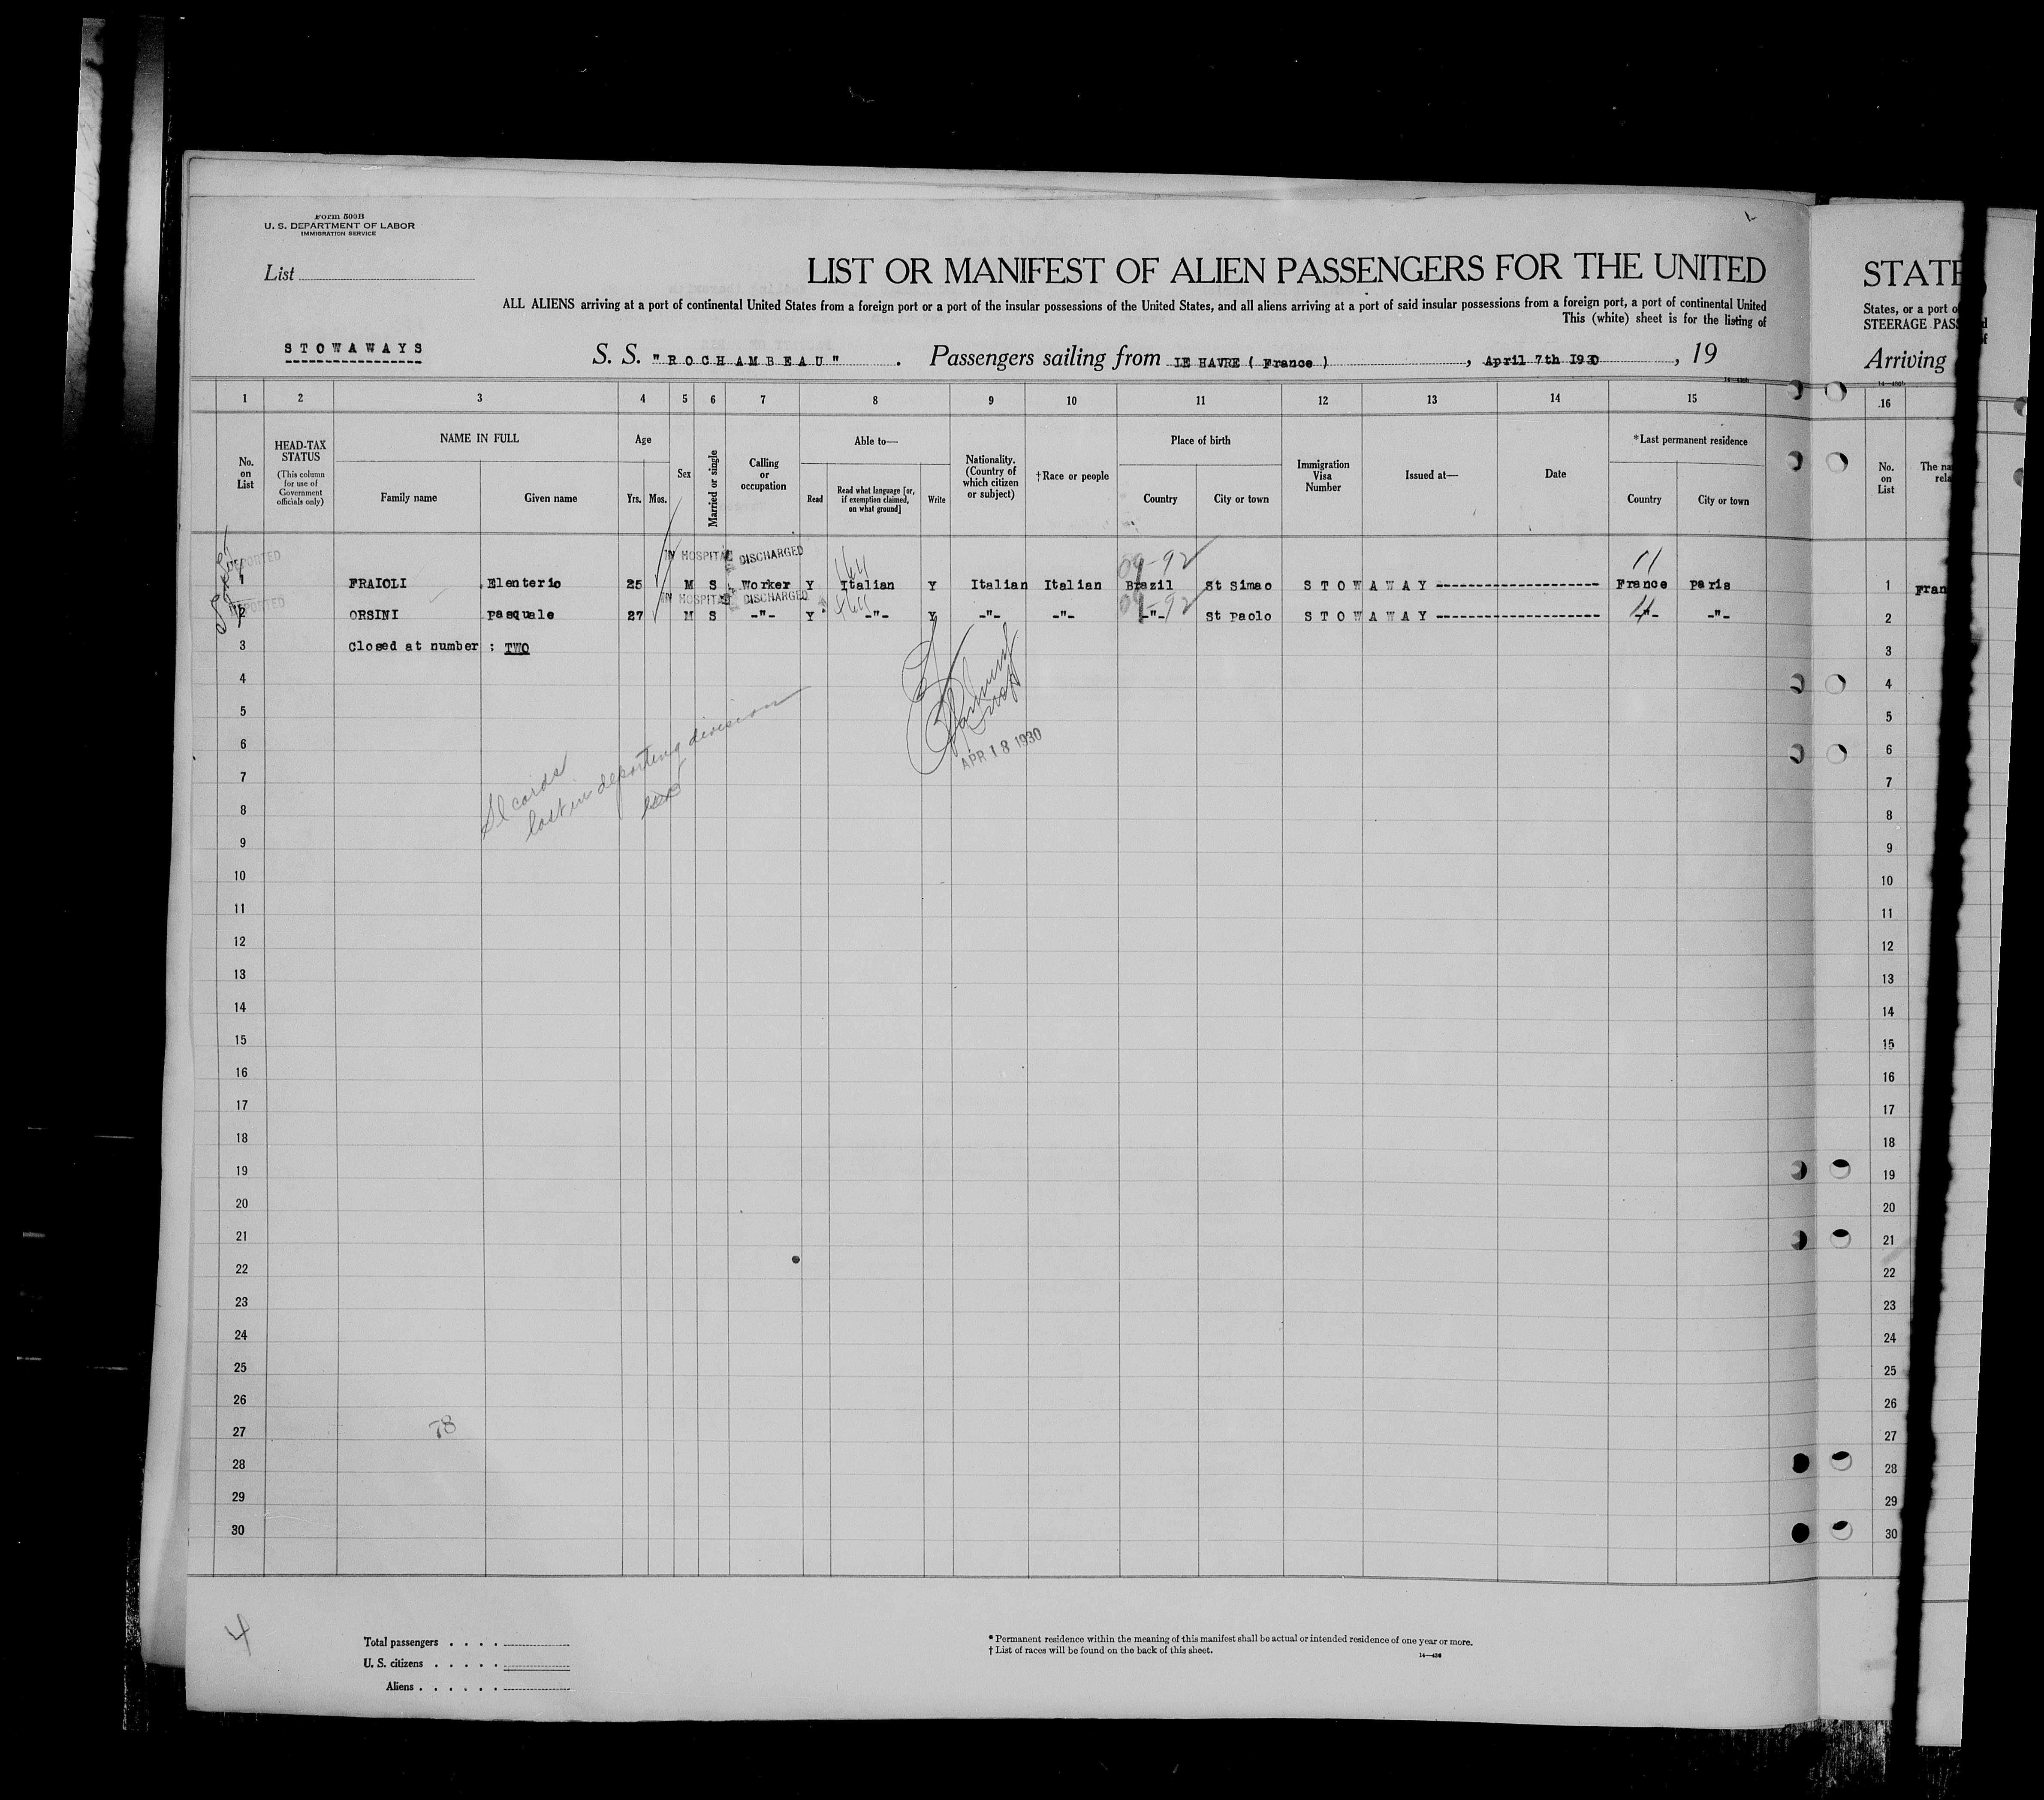 Form 500B
U. S. DEPARTMENT OF LABOR
IMMIGRATION SERVICE
List
LIST OR MANIFEST OF ALIEN PASSENGERS FOR THE UNITED
STATE
ALL ALIENS arriving at a port of continental United States from a foreign port or a port of the insular possessions of the United States, and all aliens arriving at a port of said insular possessions from a foreign port, a port of continental United
States, or a port o
This (white) sheet is for the listing of
STEERAGE PASS
STOWAWAYS
S. S. "ROCHAMBEAU". Passengers sailing from LE HAVRE ( France ), April 7th 1930, 19
Arriving
1 2 3 4 5 6 7 8 9 10 11 12 13 14 15 16
No. on List
HEAD-TAX STATUS
(This column for use of Government officials only)
NAME IN FULL
Family name
Given name
Age
Yrs. Mos.
Sex
Married or single
Calling or occupation
Able to—
Read
Read what language [or, if exemption claimed, on what ground]
Write
Nationality. (Country of which citizen or subject)
†Race or people
Place of birth
Country
City or town
Immigration Visa Number
Issued at—
Date
*Last permanent residence
Country
City or town
No. on List
The na
rela
DEPORTED IN HOSPITAL DISCHARGED 164 09-92 11
1 FRAIOLI Elenterio 25 M S Worker Y Italian Y Italian Italian Brazil St Simao STOWAWAY -------------------- France Paris 1 Fran
DEPORTED IN HOSPITAL DISCHARGED 164 09-92 11
2 ORSINI Pasquale 27 M S -"- Y -"- Y -"- -"- -"- St Paolo STOWAWAY -------------------- -"- -"- 2
3 Closed at number : TWO 3
4 4
5 5
6 6
APR 18 1930
7 7
SI cards
lost in deporting division
8 8
9 9
10 10
11 11
12 12
13 13
14 14
15 15
16 16
17 17
18 18
19 19
20 20
21 21
22 22
23 23
24 24
25 25
26 26
27 78 27
28 28
29 29
30 30
4
Total passengers . . . .
U. S. citizens . . . . .
Aliens . . . . . .
* Permanent residence within the meaning of this manifest shall be actual or intended residence of one year or more.
† List of races will be found on the back of this sheet.